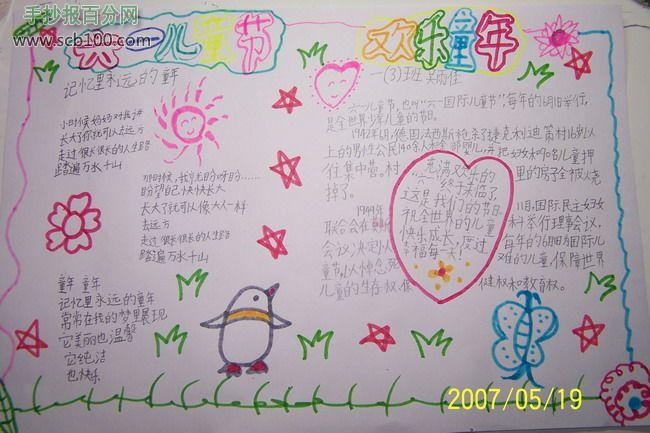 手抄报百分网
www.scb100.com
六一儿童节
欢乐童年
记忆里永远的童年
小时候妈妈对我讲
长大了你就可以去远方
走过很长很长的人生路
踏遍万水千山
那时候，
盼望自己快快长大
长大了就可以像大人一样
去远方
走过很长很长的人生路
踏遍万水千山
童年 童年
记忆里永远的童年
常常在我的梦里展现
它美丽也温馨
它纯洁
也快乐
一(3)班
六一儿童节，也叫“六一国际儿童节”每年的6月1日举行，
是全世界少年儿童的节日。
1942年6月，德国法西斯枪杀了捷克利迪策村16岁以
上的男性公民140余人和全部婴儿，并把妇女和90名儿童押
住集中营。村
里的房子全被烧
掉了。
1949年
11月，国际民主妇女
联合会在
科举行理事会议，
会议决定以
每年的6月1日为国际儿
童节，以悼念死
难的儿童，保障世界
儿童的生存权、保
健权和教育权。
充满欢乐的
终于来临了，
这是我们的节日。
祝全世界的儿童
快乐成长，度过
幸福每一天！
2007/05/19